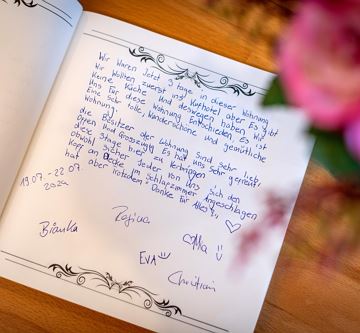 Wir Waren Jetzt 3 tage in dieser Wohnung
Wir Wollten zuerst ins Kurhotel aber Es gibt
Keine Küche Und deswegen haben Wir
Uns Für diese Wohnung Entschieden, Es ist
Eine sehr tolle, Wunderschöne und gemütliche
Wohnung!
die Besitzer der Wohnung sind sehr lieb,
Offen Und Grosszügig Es hat uns sehr gefreut,
diese Tage hier zu Verbringen
Obwohl sicher Jeder von Uns sich den
Kopf an Decke im Schlafzimmer Angeschlagen
hat aber trotzdem "Danke für Alles",
19.07. - 22.07
2024
Bianka
EVA
Christian